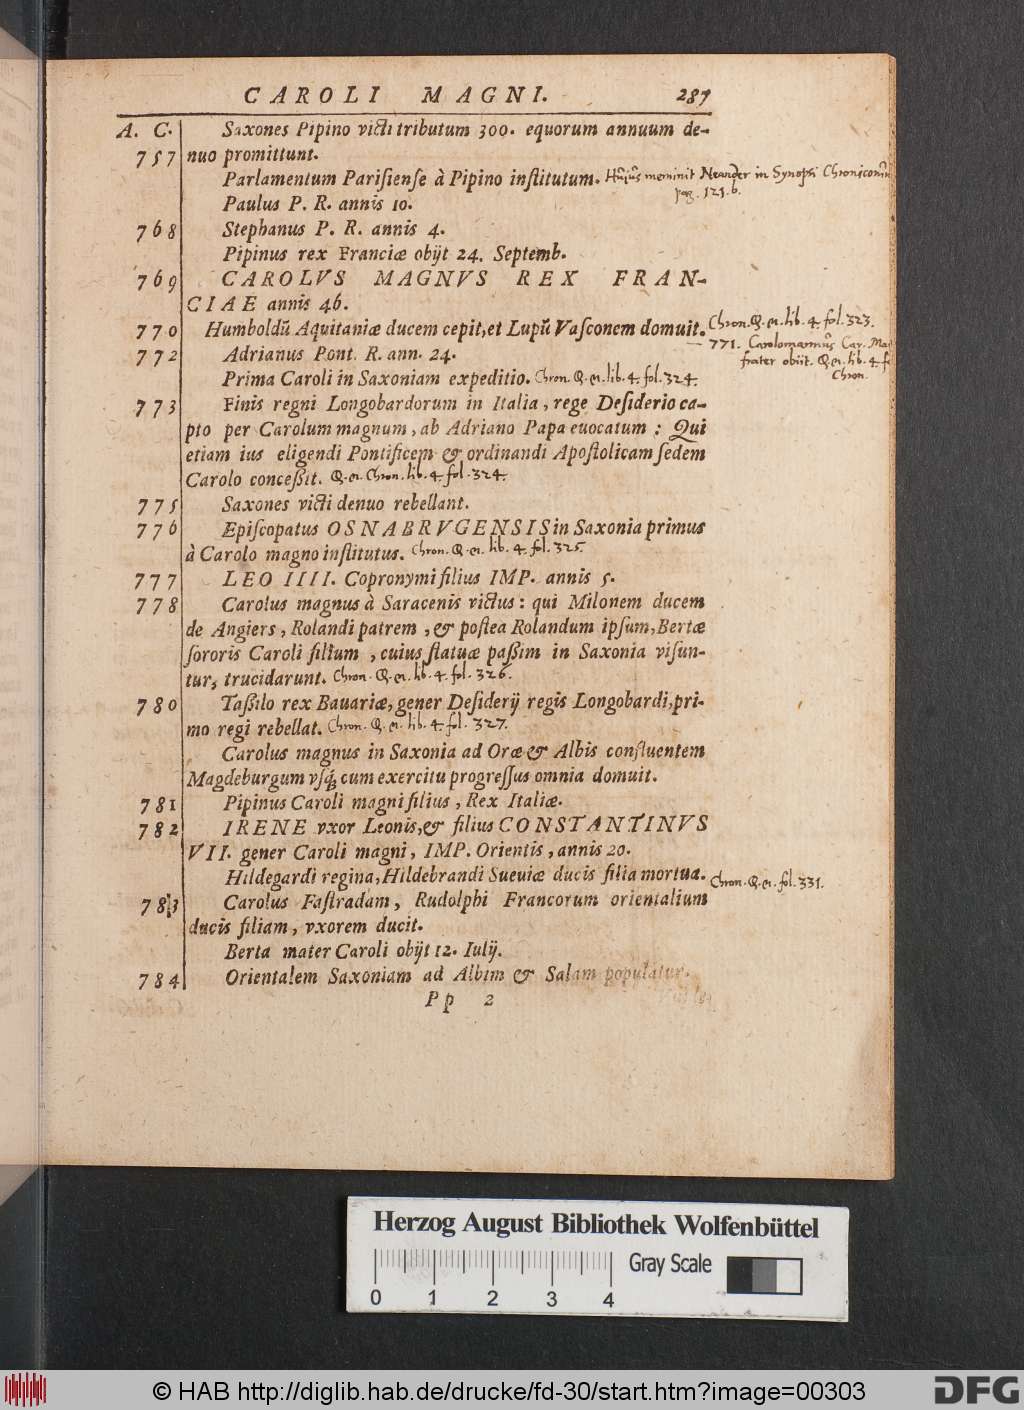 CAROLI MAGNI. 287
A. C. Saxones Pipino victi tributum 300. equorum annuum de-
757 nuo promittunt.
Parlamentum Parisiense à Pipino institutum. Huius meminit Neander in Synopsi Chronicorum
pag. 121. b.
Paulus P. R. annis 10.
768 Stephanus P. R. annis 4.
Pipinus rex Franciæ obijt 24. Septemb.
769 CAROLVS MAGNVS REX FRAN-
CIAE annis 46.
770 Humboldũ Aquitaniæ ducem cepit, et Lupũ Vasconem domuit. Chron. Q. er. lib. 4. fol. 323.
772 Adrianus Pont. R. ann. 24. — 771. Carolomannus Car. Mag
frater obiit. Q. er. lib. 4. f
Chron.
Prima Caroli in Saxoniam expeditio. Chron. Q. er. lib. 4. fol. 324.
773 Finis regni Longobardorum in Italia, rege Desiderio ca-
pto per Carolum magnum, ab Adriano Papa euocatum: Qui
etiam ius eligendi Pontificem & ordinandi Apostolicam sedem
Carolo conceßit. Q. er. Chron. lib. 4. fol. 324.
775 Saxones victi denuo rebellant.
776 Episcopatus OSNABRVGENSIS in Saxonia primus
à Carolo magno institutus. Chron. Q. er. lib. 4. fol. 325.
777 LEO IIII. Copronymi filius IMP. annis 5.
778 Carolus magnus à Saracenis victus: qui Milonem ducem
de Angiers, Rolandi patrem, & postea Rolandum ipsum, Bertæ
sororis Caroli filium, cuius statuæ paßim in Saxonia visun-
tur, trucidarunt. Chron. Q. er. lib. 4. fol. 326.
780 Taßilo rex Bauariæ, gener Desiderij regis Longobardi, pri-
mo regi rebellat. Chron. Q. er. lib. 4. fol. 327.
Carolus magnus in Saxonia ad Oræ & Albis confluentem
Magdeburgum vsq; cum exercitu progressus omnia domuit.
781 Pipinus Caroli magni filius, Rex Italiæ.
782 IRENE vxor Leonis, & filius CONSTANTINVS
VII. gener Caroli magni, IMP. Orientis, annis 20.
Hildegardi regina, Hildebrandi Sueuiæ ducis filia mortua. Chron. Q. er. fol. 331.
783 Carolus Fastradam, Rudolphi Francorum orientalium
ducis filiam, vxorem ducit.
Berta mater Caroli obijt 12. Iulij.
784 Orientalem Saxoniam ad Albim & Salam populatur.
Pp 2
Herzog August Bibliothek Wolfenbüttel
Gray Scale
0 1 2 3 4
© HAB http://diglib.hab.de/drucke/fd-30/start.htm?image=00303
DFG